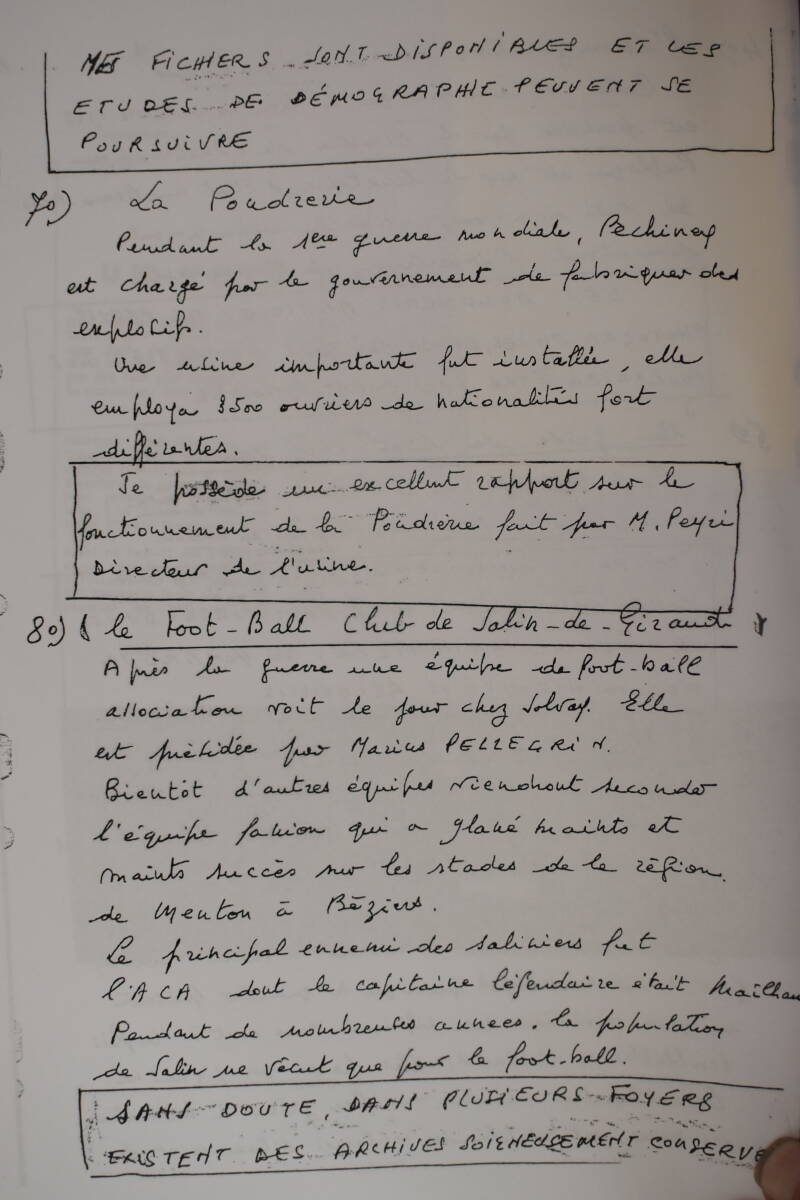 MES FICHIERS SONT DISPONIBLES ET LES
ETUDES DE DÉMOGRAPHIE PEUVENT SE
POURSUIVRE
7o) La Poudrerie
Pendant la 1ere guerre mondiale, Péchiney
est chargé par le gouvernement de fabriquer des
explosifs.
Une usine importante fut installée, elle
employa 3500 ouvriers de nationalités fort
différentes.
Je possède un excellent rapport sur le
fonctionnement de la Poudrerie fait par M. Peyri
Directeur de l'usine.
8o) le Foot-Ball Club de Salin-de-Giraud
Après la guerre une équipe de foot-ball
association voit le jour chez Solvay. Elle
est présidée par Marius PELLEGRIN.
Bientôt d'autres équipes viendront seconder
l'équipe fanion qui a glané maints et
maints succès sur les stades de la région.
de Menton à Béziers.
Le principal ennemi des saliniers fut
l'ACA dont le capitaine légendaire était Mailhan
Pendant de nombreuses années. la population
de Salin ne vécut que pour le foot-ball.
SANS DOUTE, DANS PLUSIEURS FOYERS
EXISTENT DES ARCHIVES SOIGNEUSEMENT CONSERVE